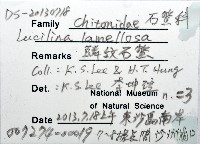 DS-20130718
Family Chitonidae 石鱉科
Lucilina lamellosa
Remarks: 石鱉
Coll.: K.S. Lee & H.T. Hung
Det.: K.S. Lee 李坤瑄
National Museum of Natural Science
n=3
Date 2013.7.18上午 東沙島南岸
007274-00019